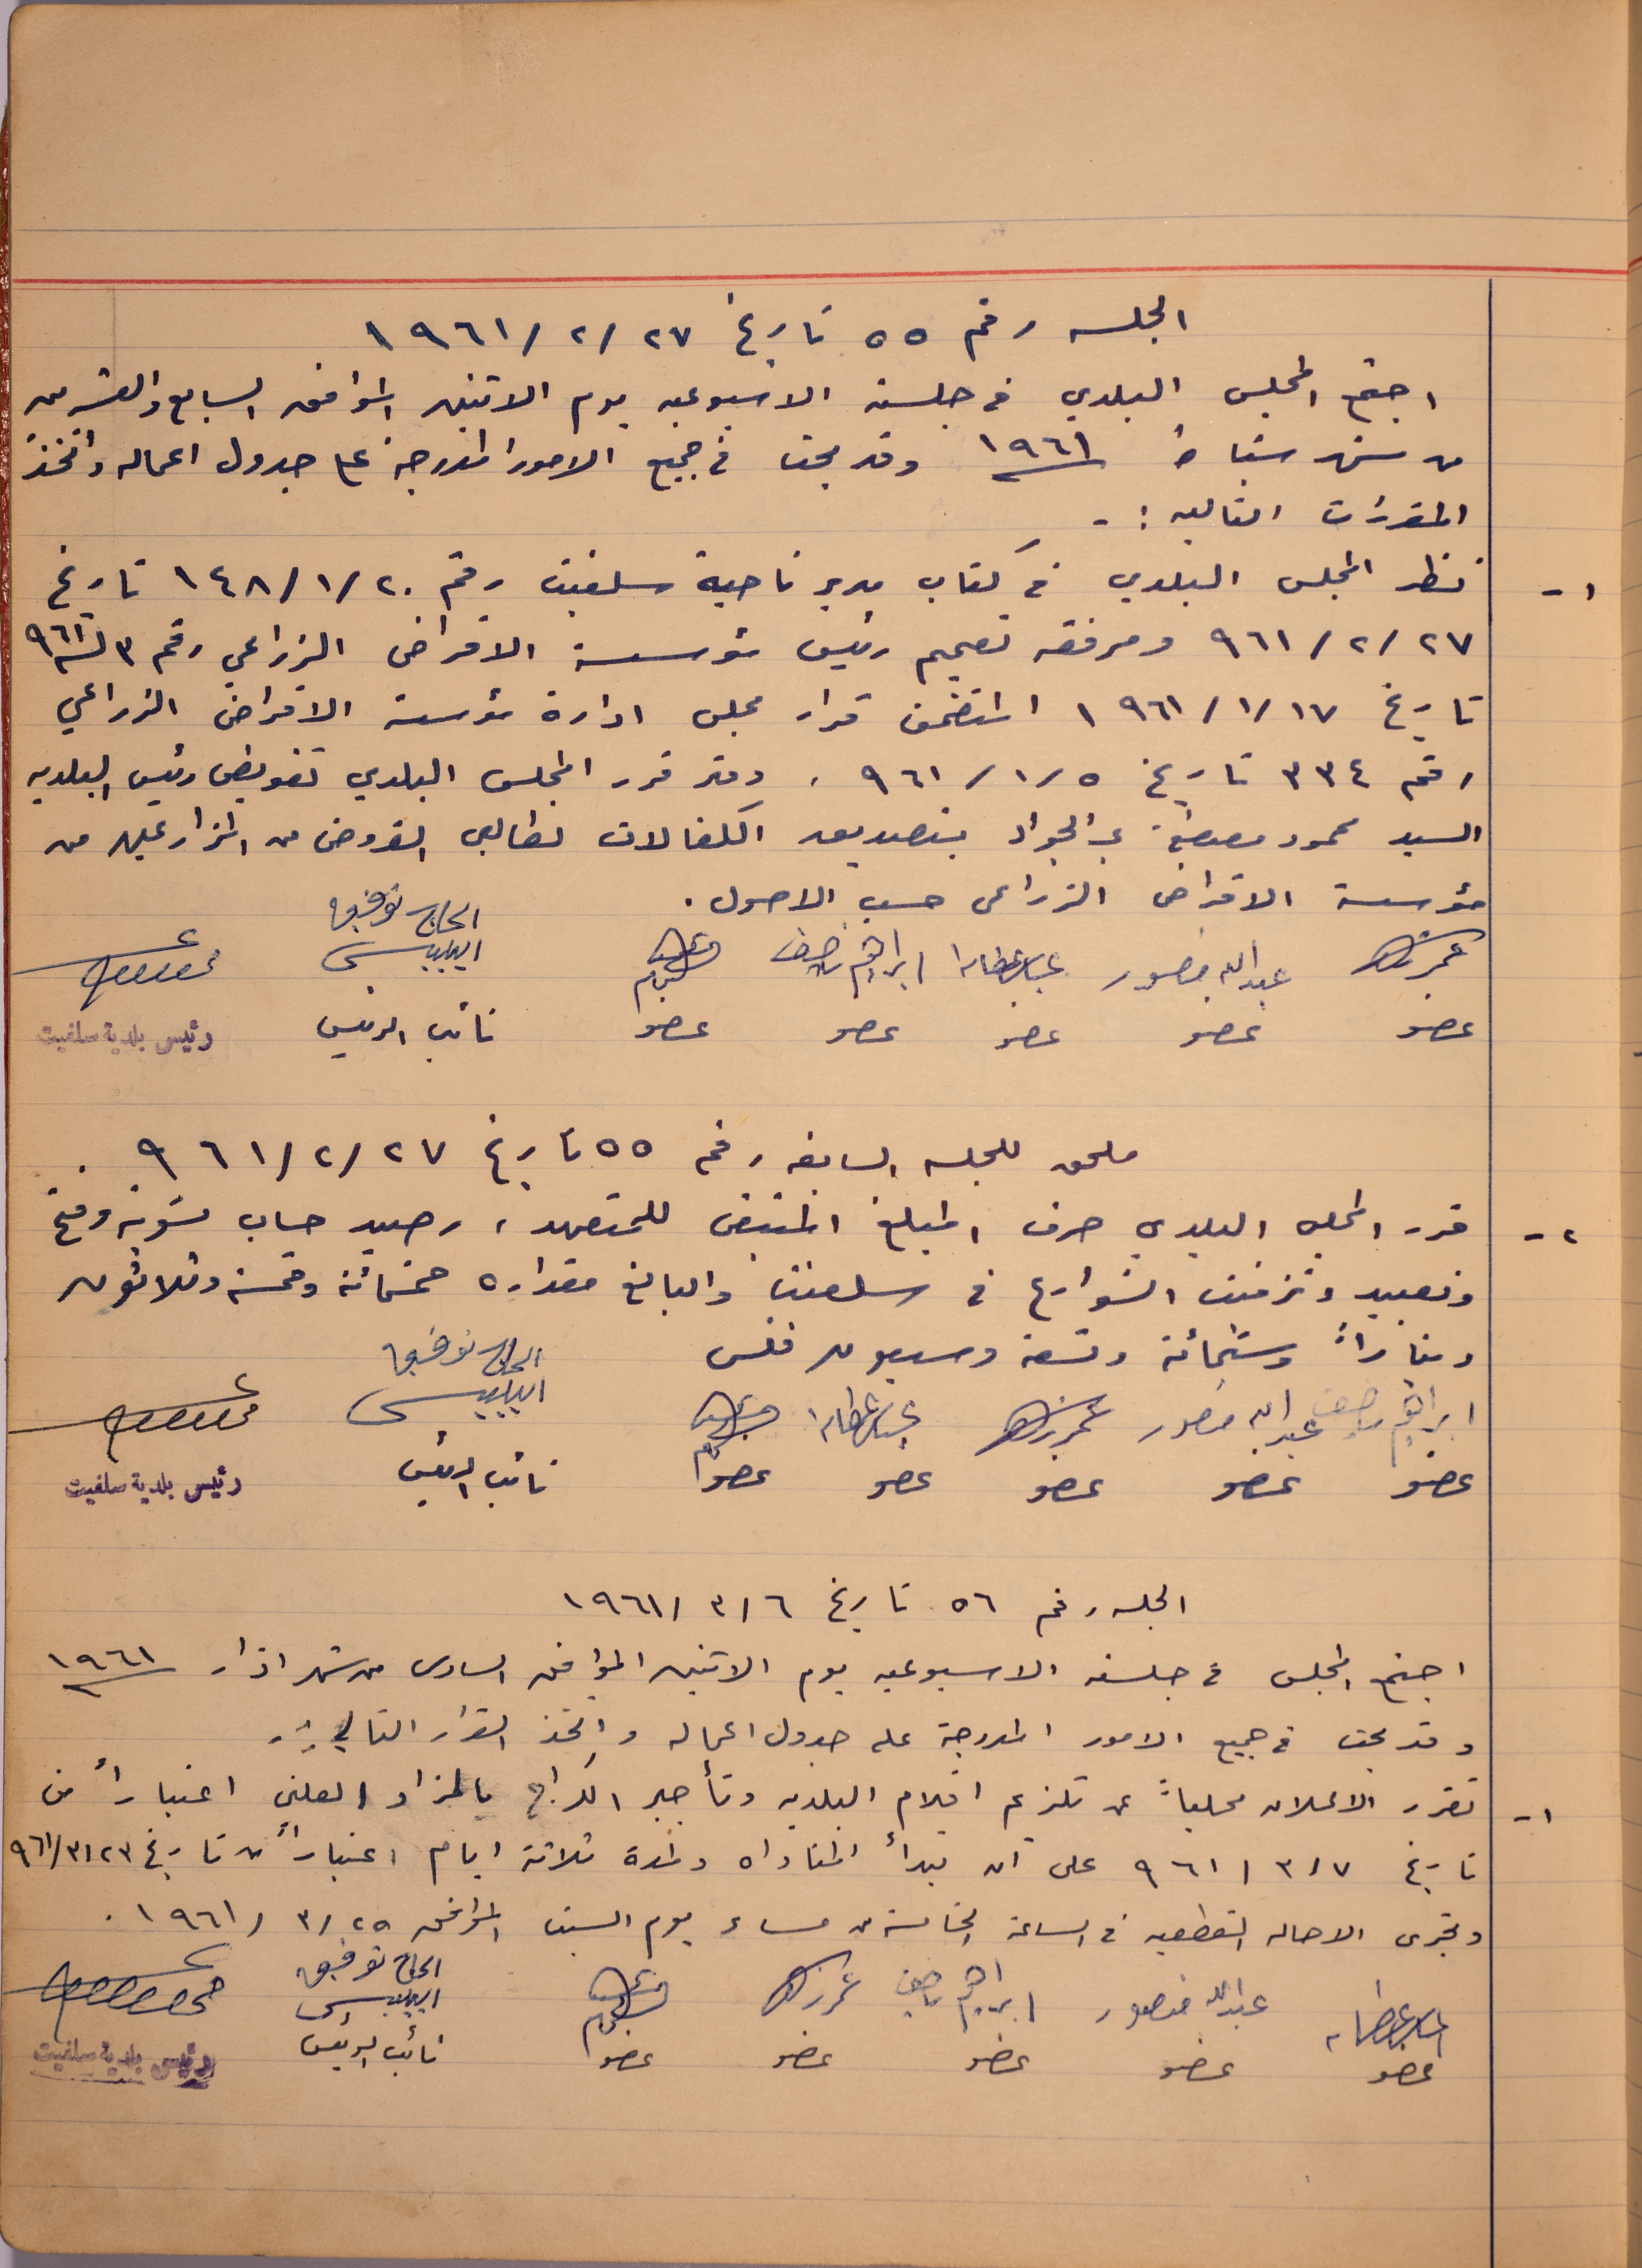 الجلسه رقم ٥٥ تاريخ ٢٧/٢/١٩٦١
اجتمع المجلس البلدي في جلسته الاسبوعيه يوم الاثنين الموافق السابع والعشرين
من شهر شباط ١٩٦١ وقد بحث في جميع الامور المدرجة على جدول اعماله واتخذ
المقررات التاليه :-
١- نظر المجلس البلدي في كتاب مدير ناحية سلفيت رقم ١٤٨/١/٢٠ تاريخ
٢٧/٢/٩٦١ ومرفقه تعميم رئيس مؤسسة الاقراض الزراعي رقم ٣ لسنة ٩٦١
تاريخ ١٧/١/١٩٦١ المتضمن قرار مجلس ادارة مؤسسة الاقراض الزراعي
رقم ٣٣٤ تاريخ ٥/١/٩٦١ ، وقد قرر المجلس البلدي تفويض رئيس البلديه
السيد محمود مصطفى عبد الجواد بتصديق الكفالات لطالبي القروض من المزارعين من
مؤسسة الاقراض الزراعي حسب الاصول .
عبدالله منصور ابراهيم الحاج توفيق
البيبسي
عضو عضو عضو عضو عضو نائب الرئيس رئيس بلدية سلفيت
ملحق للجلسه السابقه رقم ٥٥ تاريخ ٢٧/٢/٩٦١ .
٢- قرر المجلس البلدي صرف المبلغ المتبقي للمتعهد ، رصيد حساب تسوية وفتح
وتعبيد وتزفيت الشوارع في سلفيت والبالغ مقداره خمسمائة وخمسة وثلاثون
ديناراً وستمائة وتسعة وسبعون فلس
ابراهيم عبدالله منصور الحاج توفيق
البيبسي
عضو عضو عضو عضو عضو نائب الرئيس رئيس بلدية سلفيت
الجلسه رقم ٥٦ تاريخ ٦/٣/١٩٦١
اجتمع المجلس في جلسته الاسبوعيه يوم الاثنين الموافق السادس من شهر اذار ١٩٦١
وقد بحث في جميع الامور المدرجة على جدول اعماله واتخذ القرار التالي :-
١- تقرر الاعلان محلياً عن تلزيم اقلام البلديه وتأجير الكراج بالمزاد العلني اعتباراً من
تاريخ ٧/٣/٩٦١ على ان تبدأ المناداه ولمدة ثلاثة ايام اعتباراً من تاريخ ٢٣/٣/٩٦١
وتجرى الاحاله القطعيه في الساعة الخامسة من مساء يوم السبت الموافق ٢٥/٣/١٩٦١ .
عبدالله منصور ابراهيم الحاج توفيق
البيبسي
عضو عضو عضو عضو عضو نائب الرئيس رئيس بلدية سلفيت